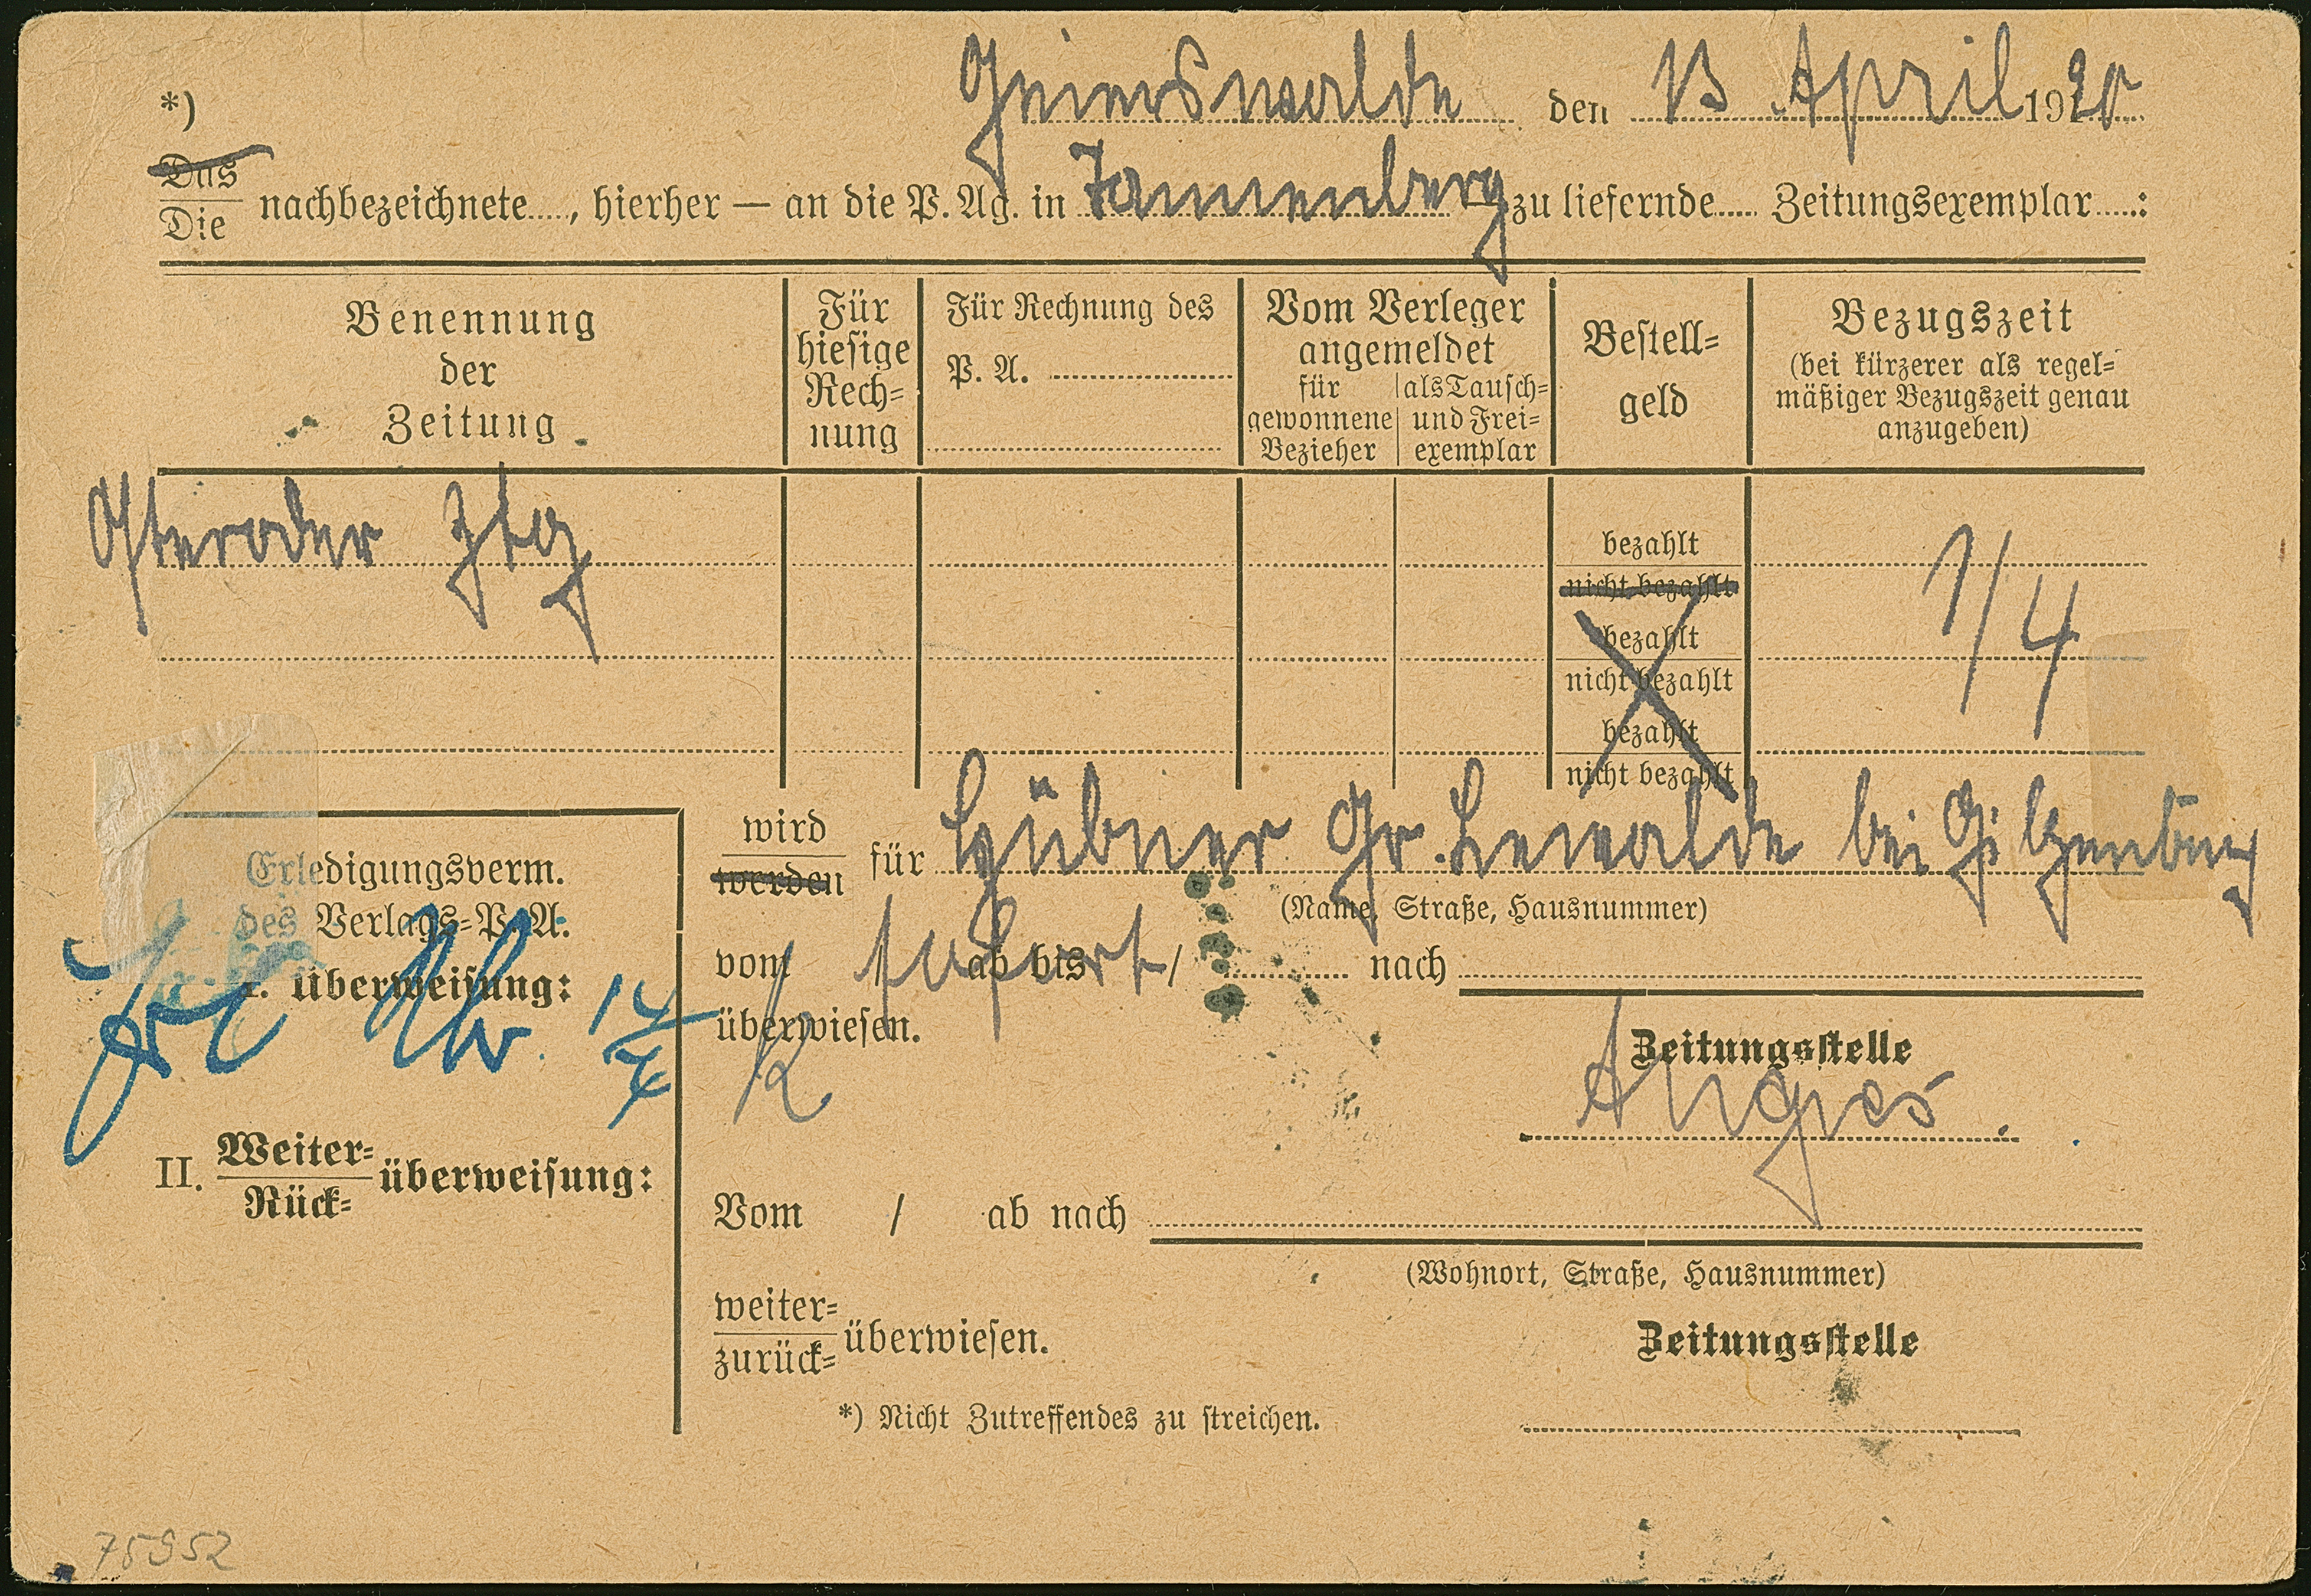 Geierswalde den 13 April 1920
*)
Das
Die nachbezeichnete...., hierher — an die P. Ag. in Tannenberg zu liefernde..... Zeitungsexemplar.....:
Benennung der Zeitung
Für hiesige Rech-nung
Für Rechnung des P. A.
Vom Verleger angemeldet
für gewonnene Bezieher
als Tausch- und Frei-exemplar
Bestell-geld
Bezugszeit
(bei kürzerer als regel-
mäßiger Bezugszeit genau
anzugeben)
Osteroder Ztg
bezahlt
nicht bezahlt
bezahlt
nicht bezahlt
bezahlt
nicht bezahlt
1/4
Erledigungsverm.
des Verlags-P. A.
I. Überweisung:
14/4
II. Weiter-
Rück- überweisung:
wird
werden für Hübner Gr. Lewalde bei Gilgenburg
(Name, Straße, Hausnummer)
vom sofort ab bis / nach
überwiesen.
Zeitungsstelle
Vom / ab nach
(Wohnort, Straße, Hausnummer)
weiter-
zurück- überwiesen.
Zeitungsstelle
*) Nicht Zutreffendes zu streichen.
75952